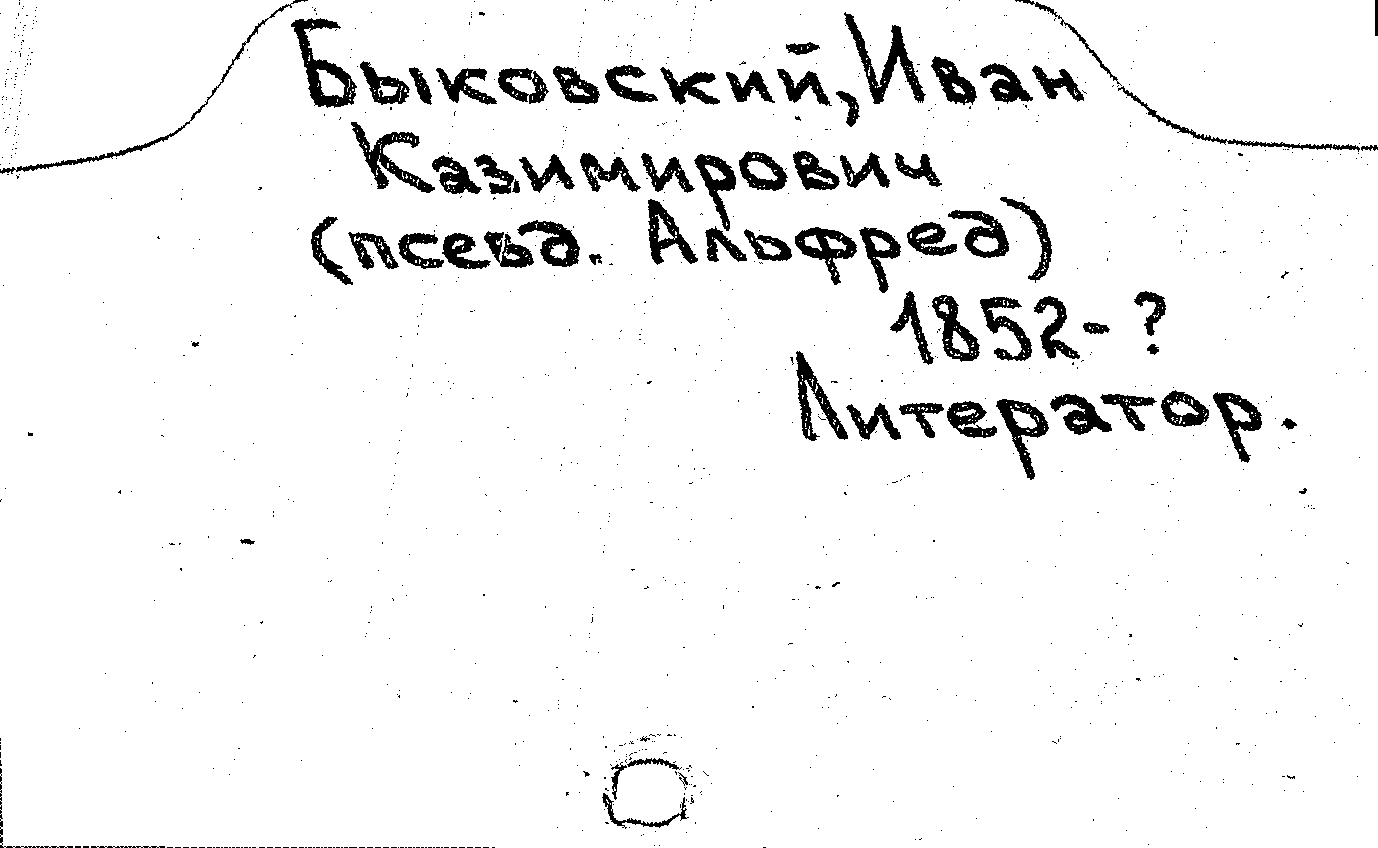 Быковский, Иван
Казимирович
(псевд. Альфред)
1852-?
Литератор.